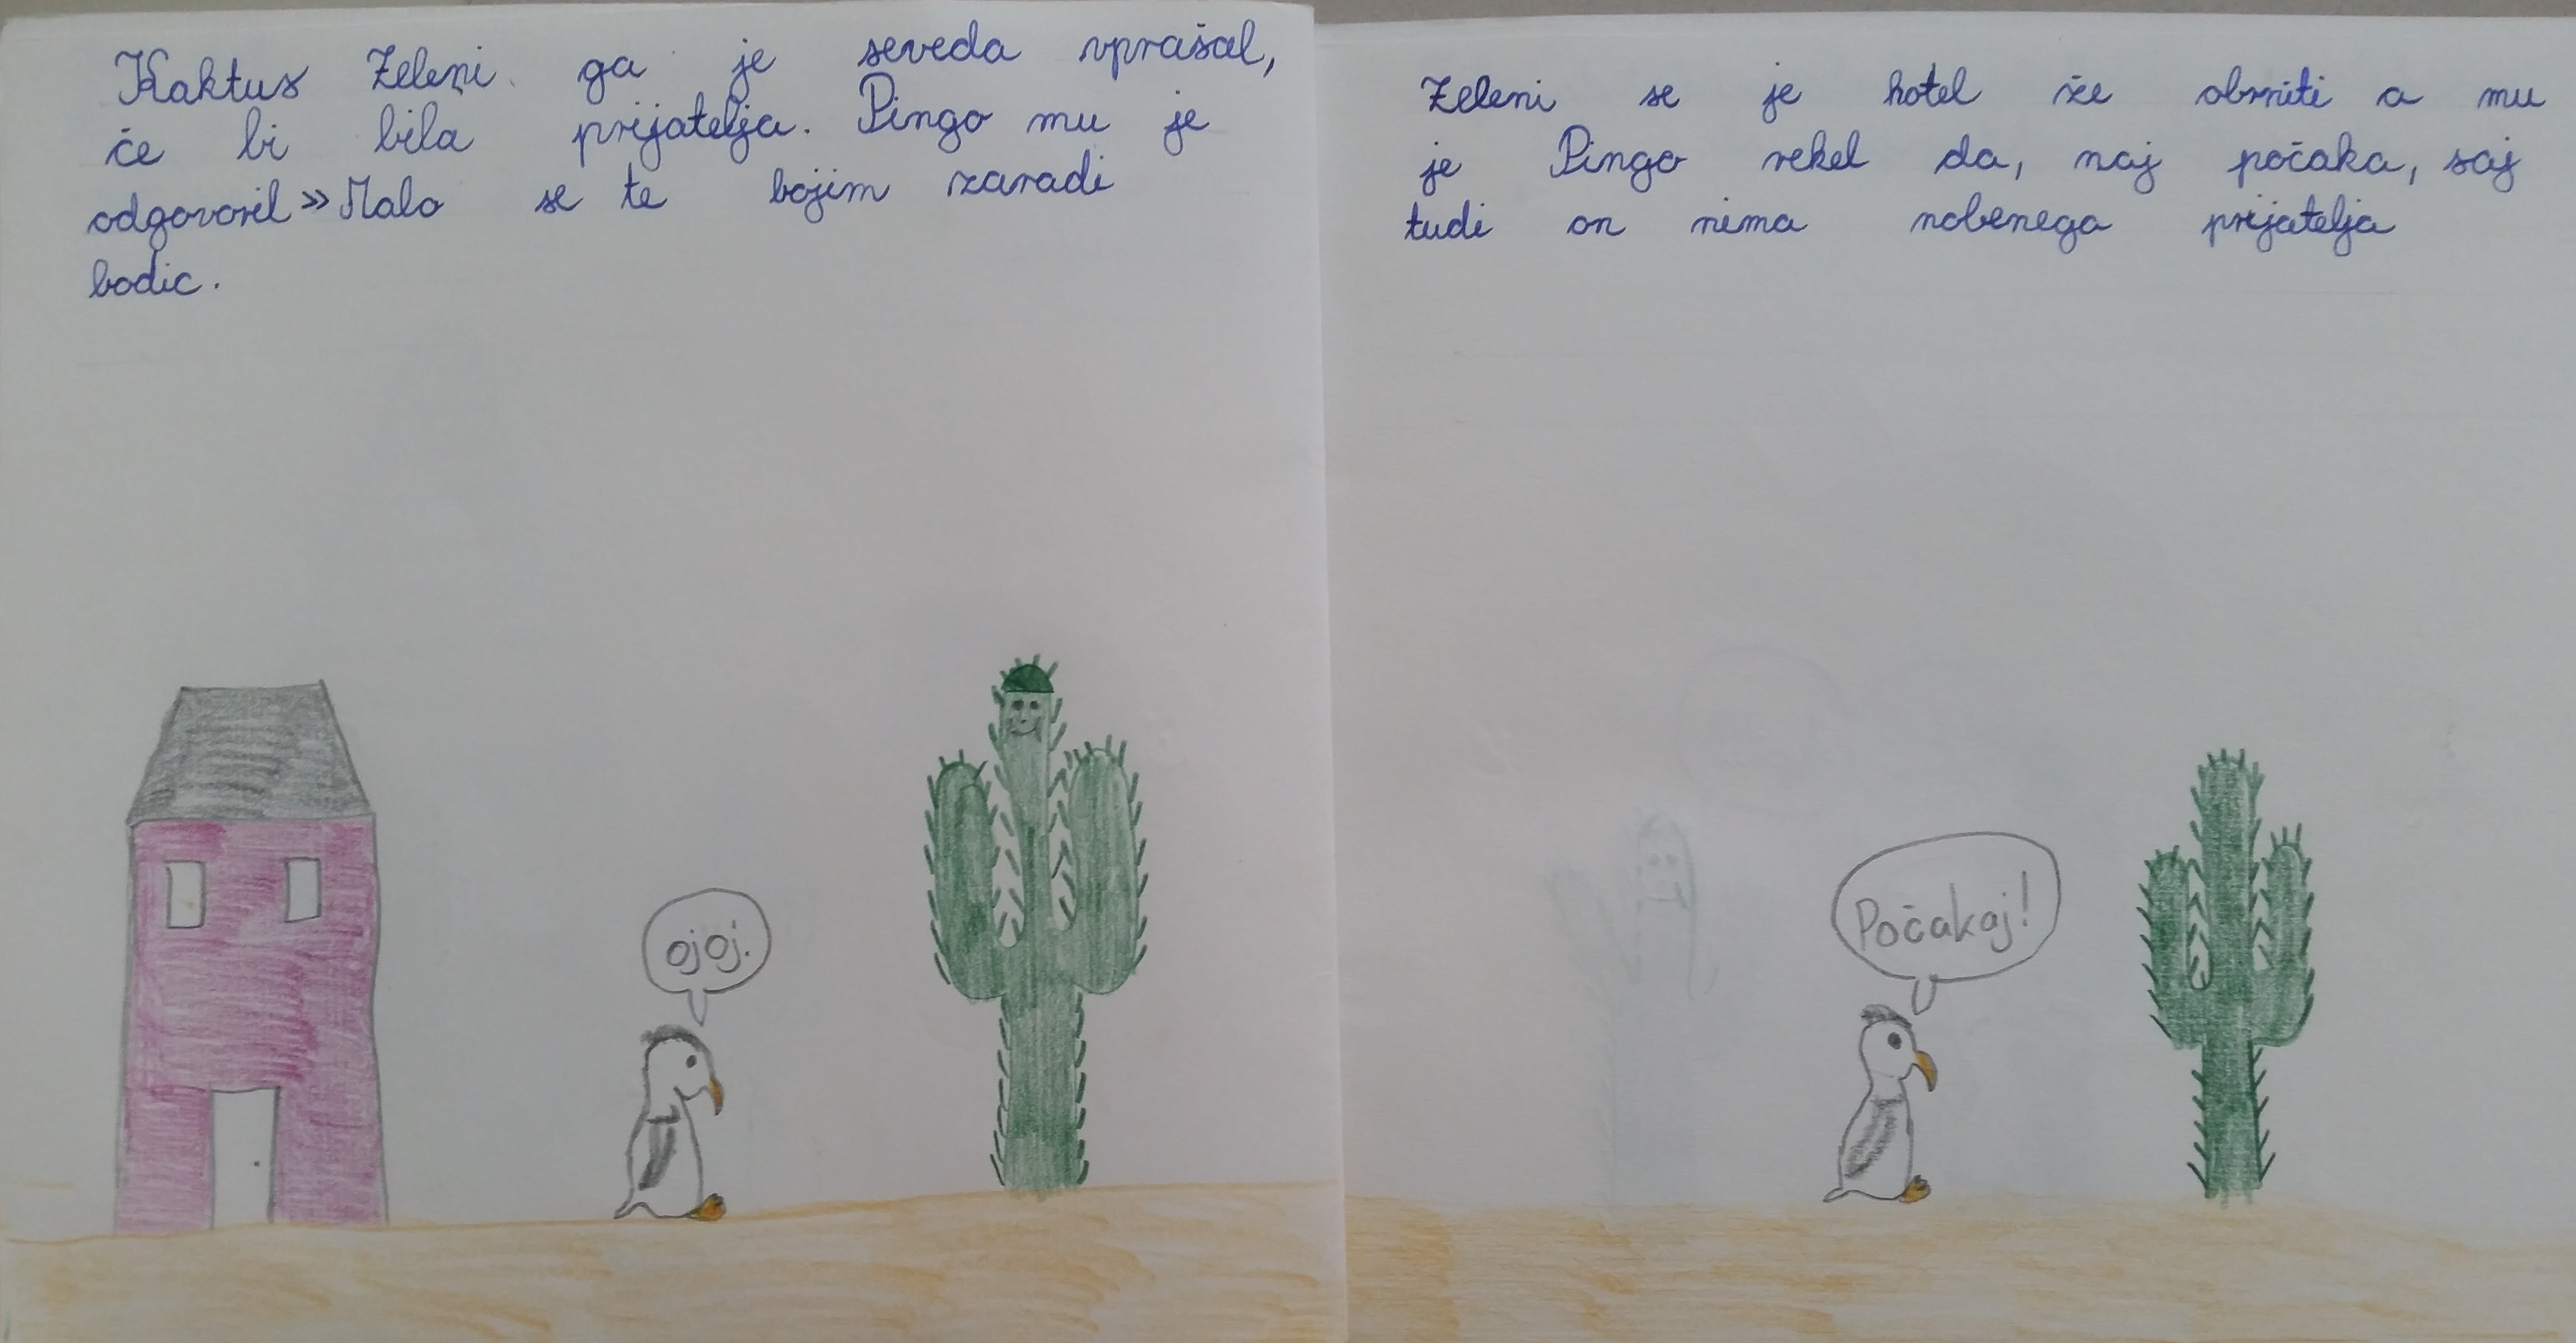 Kaktus Zeleni ga je seveda vprašal,
če bi bila prijatelja. Pingo mu je
odgovoril »Malo se te bojim zaradi
bodic.
ojoj.
Zeleni se je hotel že obrniti a mu
je Pingo rekel da, naj počaka, saj
tudi on nima nobenega prijatelja
Počakaj!